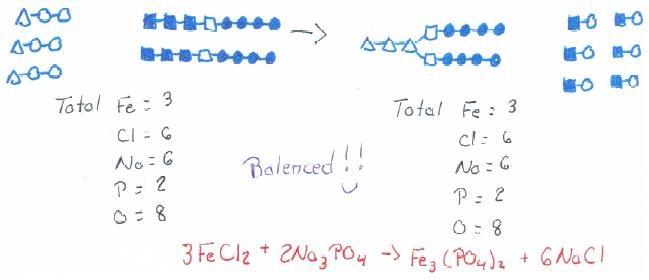 Total Fe = 3
Cl = 6
Na = 6
P = 2
O = 8
Balenced!!
Total Fe = 3
Cl = 6
Na = 6
P = 2
O = 8
3FeCl2 + 2Na3PO4 -> Fe3(PO4)2 + 6NaCl